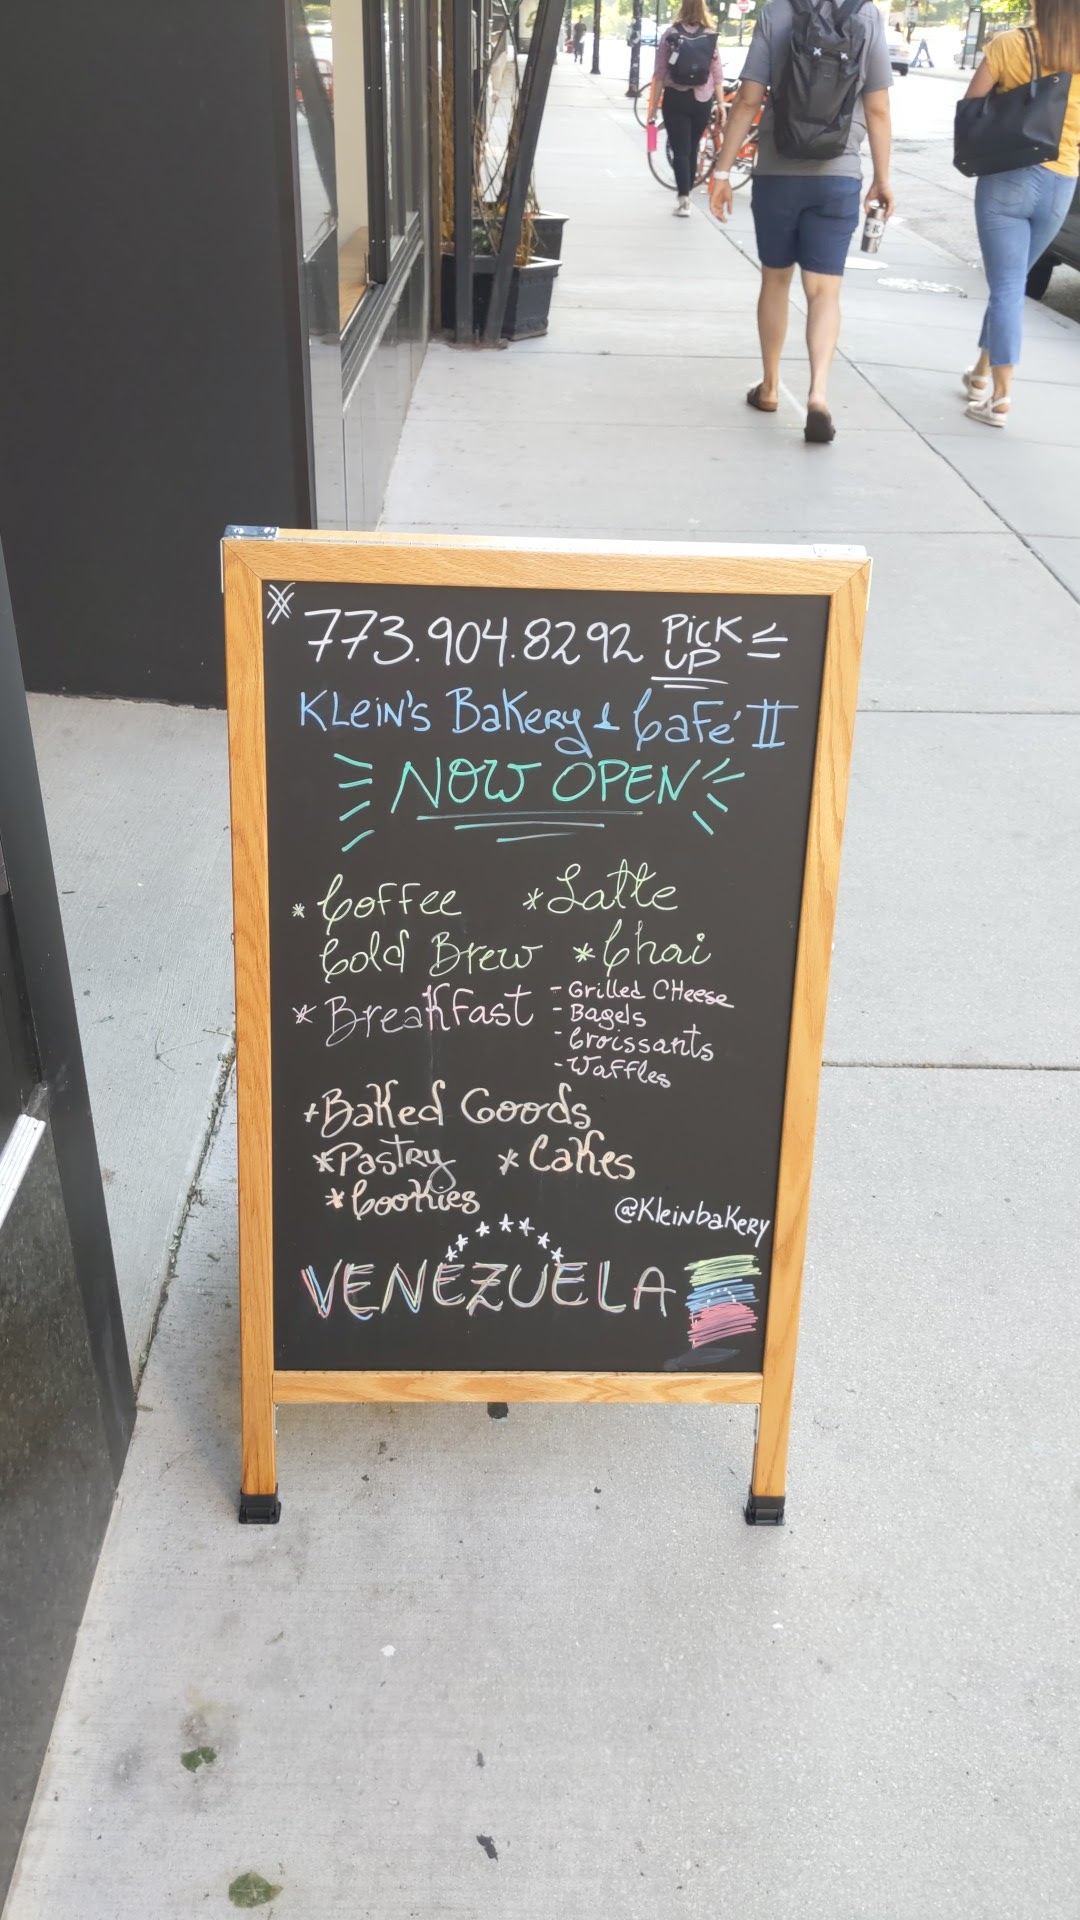 773.904.8292 PiCK UP
KLeiN's BaKery & Café II
NOW OPEN
* Coffee * Latte
Cold Brew * Chai
* Breakfast
- Grilled CHeese
- Bagels
- Croissants
- Waffles
+ Baked Goods
* Pastry * Cakes
* Cookies
@KleinbaKery
VENEZUELA